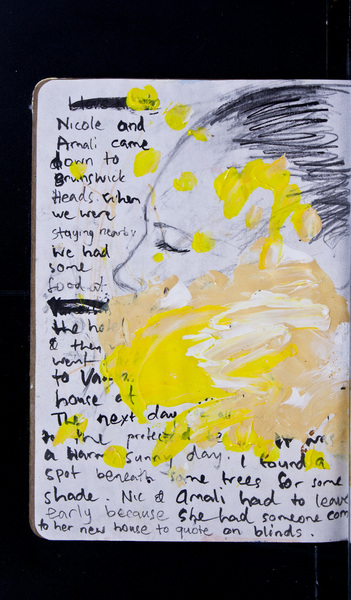 Nicole and
Amali came
down to
Brunswick
Heads. when
we were
staying nearby
we had
some
food at
the hotel
& then
went
to
house
The next day
to the protected
a warm sunny day. I found a
spot beneath some trees for some
shade. Nic & Amali had to leave
early because she had someone com
to her new house to quote on blinds.